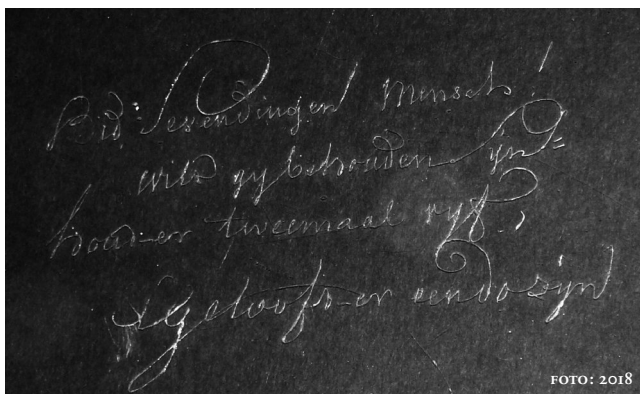 Bid: Sevendingen Mensch!
wilt gy behouden Syn=
houd-er tweemaal vyf.
& geloofd-er een dosijn
FOTO: 2018